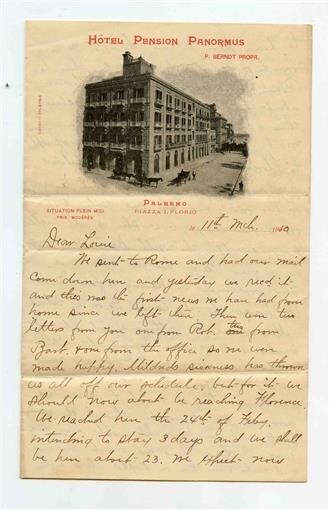 HÔTEL PENSION PANORMUS
P. BERNDT PROPR.
SITUATION PLEIN MIDI
PRIX MODÉRÉS
PALERMO
PIAZZA I. FLORIO
11th Mch. 1910
Dear Louie
We sent to Rome and had our mail
come down here and yesterday we recd it
and this was the first news we have had from
home since we left there. There were two
letters from you one from Rob. two from
Bart. & one from the office so we were
made happy. Mildreds sickness has thrown
us all off our schedule, but for it we
should now about be reaching Florence.
We reached here the 24th of Feby.
intending to stay 3 days and we shall
be here about 23. We expect now